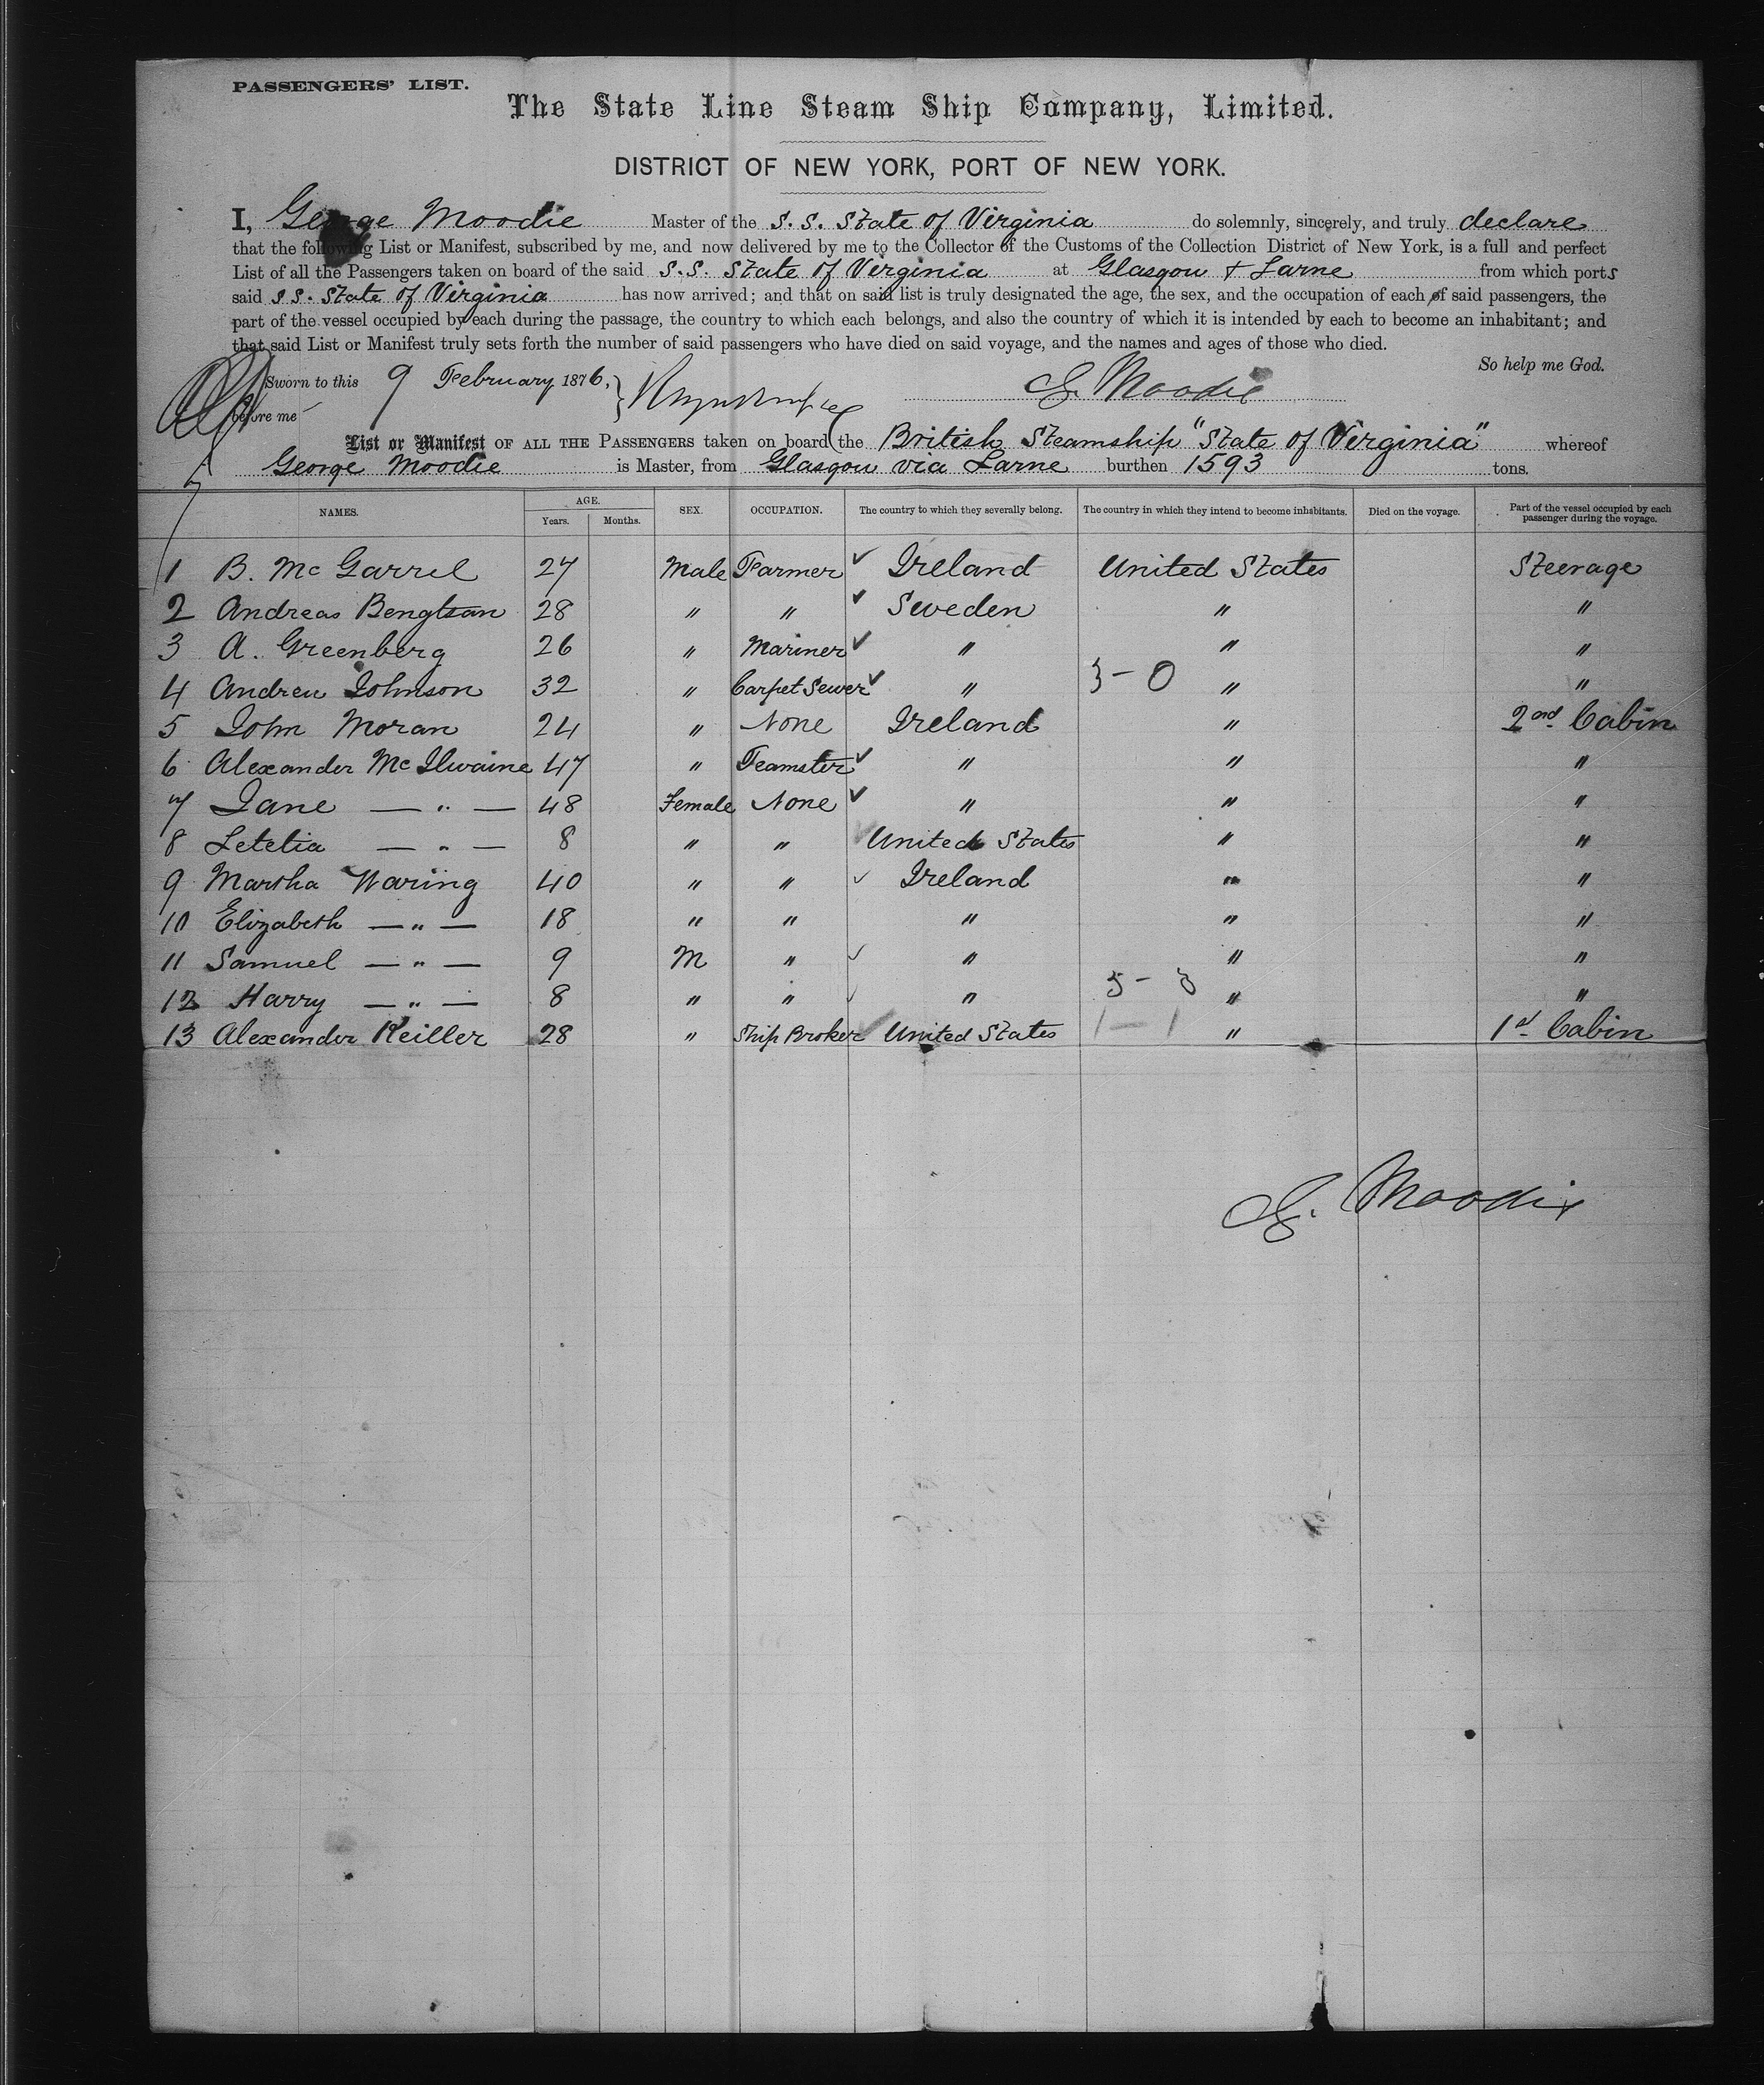 PASSENGERS' LIST.
The State Line Steam Ship Company, Limited.
DISTRICT OF NEW YORK, PORT OF NEW YORK.
I, George Moodie Master of the S.S. State of Virginia do solemnly, sincerely, and truly declare
that the following List or Manifest, subscribed by me, and now delivered by me to the Collector of the Customs of the Collection District of New York, is a full and perfect
List of all the Passengers taken on board of the said S.S. State of Virginia at Glasgow & Larne from which ports
said S.S. State of Virginia has now arrived; and that on said list is truly designated the age, the sex, and the occupation of each of said passengers, the
part of the vessel occupied by each during the passage, the country to which each belongs, and also the country of which it is intended by each to become an inhabitant; and
that said List or Manifest truly sets forth the number of said passengers who have died on said voyage, and the names and ages of those who died.
So help me God.
Sworn to this 9 February 1876,
before me
G. Moodie
List or Manifest OF ALL THE PASSENGERS taken on board the British Steamship "State of Virginia" whereof
George Moodie is Master, from Glasgow via Larne burthen 1593 tons.
NAMES. AGE. Years. Months. SEX. OCCUPATION. The country to which they severally belong. The country in which they intend to become inhabitants. Died on the voyage. Part of the vessel occupied by each passenger during the voyage.
1 B. Mc Garrel 27 Male Farmer ✓ Ireland United States Steerage
2 Andreas Bengtson 28 " " ✓ Sweden " "
3 A. Greenberg 26 " Mariner ✓ " " "
4 Andrew Johnson 32 " Carpet Sewer ✓ " 3-0 " "
5 John Moran 24 " None Ireland " 2nd Cabin
6 Alexander McIlwaine 47 " Teamster ✓ " " "
7 Jane — " — 48 Female None ✓ " " "
8 Letetia — " — 8 " " ✓ United States " "
9 Martha Waring 40 " " ✓ Ireland " "
10 Elizabeth — " — 18 " " " " "
11 Samuel — " — 9 M " ✓ " " "
12 Harry — " — 8 " " ✓ " 5-3 " "
13 Alexander Keiller 28 " Ship Broker ✓ United States 1-1 " 1st Cabin
G. Moodie